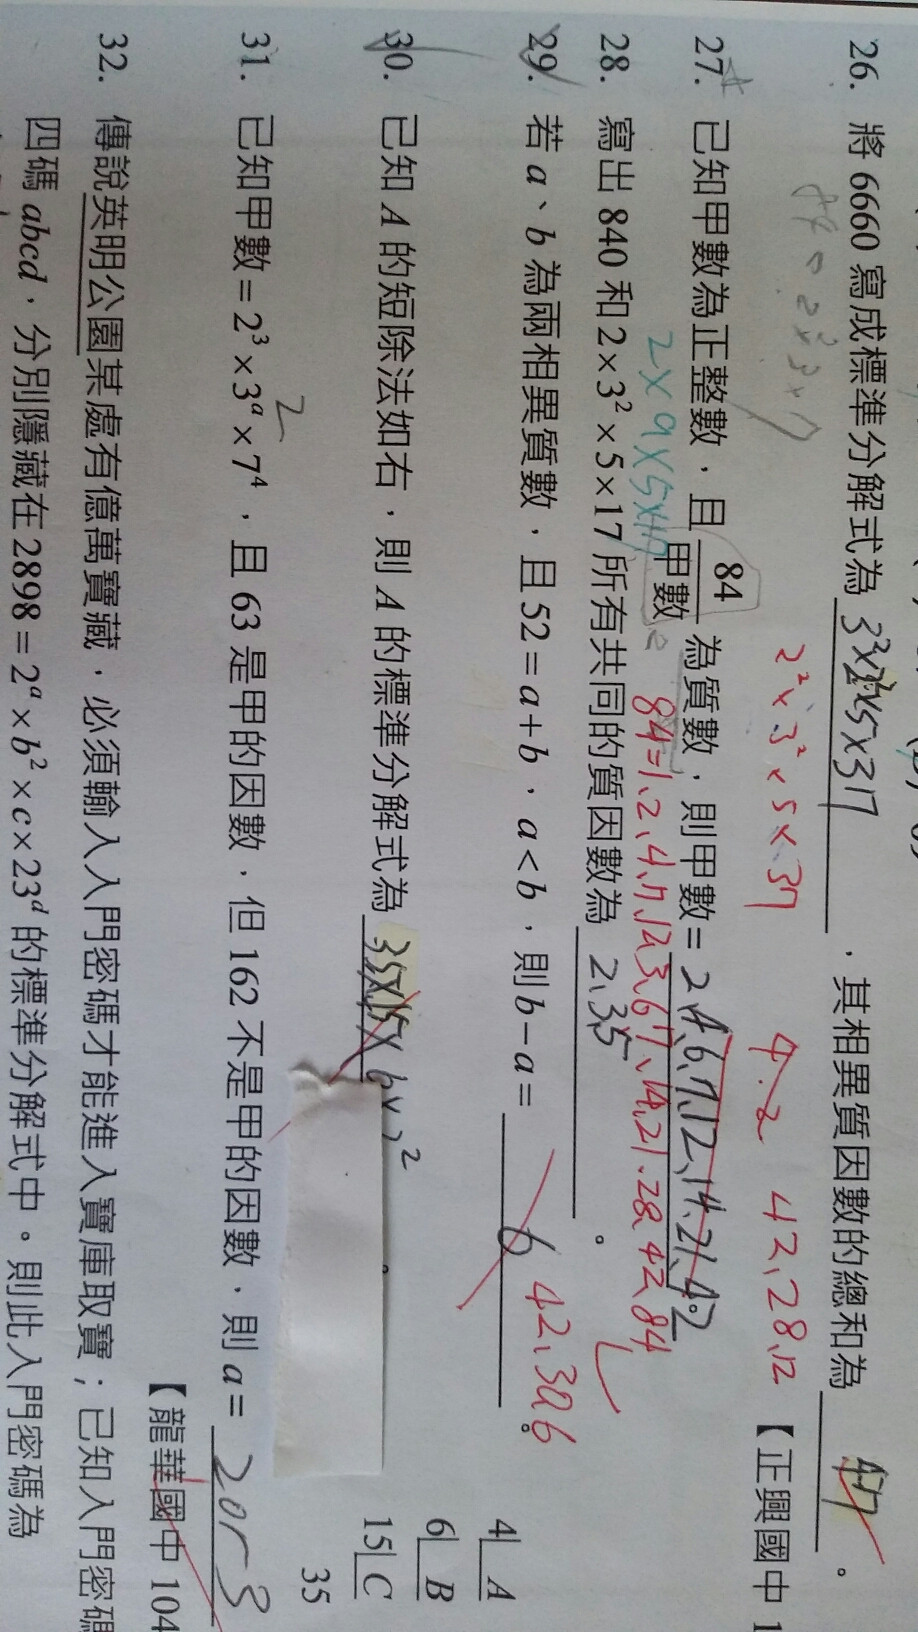 26. 將 6660 寫成標準分解式為 3³×2²×5×317 ，其相異質因數的總和為 47 。
2²×3²×5×37
【正興國中 1
27. 已知甲數為正整數，且 84/甲數 為質數，則甲數= 2,4,6,7,12,14,21,42
4.2 42,28,12
84=1、2、4、7、12、3、6、1、14、21、28、42、84
2×9×5×17
28. 寫出 840 和 2×3²×5×17 所有共同的質因數為 2,3,5 。
29. 若 a、b 為兩相異質數，且 52=a+b，a<b，則 b−a= 6 。
42,30,6
30. 已知 A 的短除法如右，則 A 的標準分解式為 35×15×6×2²
4 A
6 B
15 C
35
31. 已知甲數=2³×3ᵃ×7⁴，且 63 是甲的因數，但 162 不是甲的因數，則 a= 2or3
2
【龍華國中 104
32. 傳說英明公園某處有億萬寶藏，必須輸入入門密碼才能進入寶庫取寶；已知入門密碼
四碼 abcd，分別隱藏在 2898=2ᵃ×b²×c×23ᵈ 的標準分解式中。則此入門密碼為